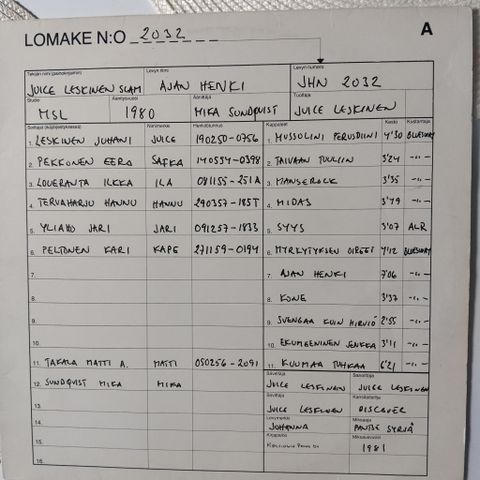 LOMAKE N:O 2032
A
Tekijän nimi (pääsolisti)
Levyn nimi
Levyn numero
JUICE LESKINEN SLAM AJAN HENKI JHN 2032
Studio Äänitysvuosi Äänittäjä Tuottaja
MSL 1980 MIKA SUNDQVIST JUICE LESKINEN
Nimimerkki Henkilötunnus Kappaleet Kesto Kustantaja
1. LESKINEN JUHANI JUICE 190250-0756 1. MUSSOLINI PERUSDIINI 4'30 BLUEBERRY
2. PEKKONEN EERO SAFKA 140554-0398 2. TAIVAAN TUULIIN 3'24 -"-
3. LOUERANTA ILKKA ILA 081155-251A 3. MANSEROCK 3'35 -"-
4. TERVAHARJU HANNU HANNU 290357-185T 4. MIDAS 3'49 -"-
5. YLIAHO JARI JARI 091257-1833 5. SYYS 3'07 ALR
6. PELTONEN KARI KAPE 271159-0194 6. MYRKYTYKSEN OIREET 4'12 BLUEBERRY
7. 7. AJAN HENKI 7'06 -"-
8. 8. KONE 3'37 -"-
9. 9. SVENGAA KUIN HIRVIÖ 2'55 -"-
10. 10. EKUMEENINEN JENKKA 3'11 -"-
11. TAKALA MATTI A. MATTI 050256-2091 11. KUUMAA TUHKAA 6'21 -"-
12. SUNDQVIST MIKA MIKA
Säveltäjä Sanoittaja
JUICE LESKINEN JUICE LESKINEN
13.
Sovittaja
JUICE LESKINEN DISCOVER
14.
Levymerkki Miksaaja
JOHANNA PANTSE SYRJÄ
15.
Kirjapaino Miksausvuosi
1981
16.